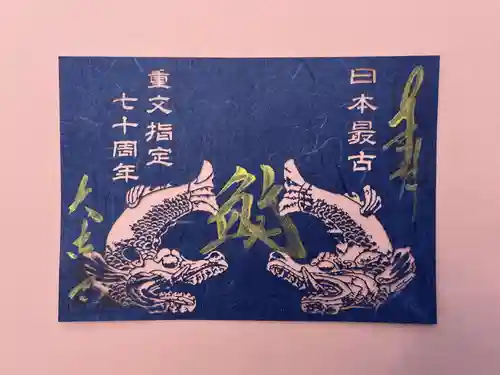 日本最古
重文指定
七十周年
奉拝
鯱